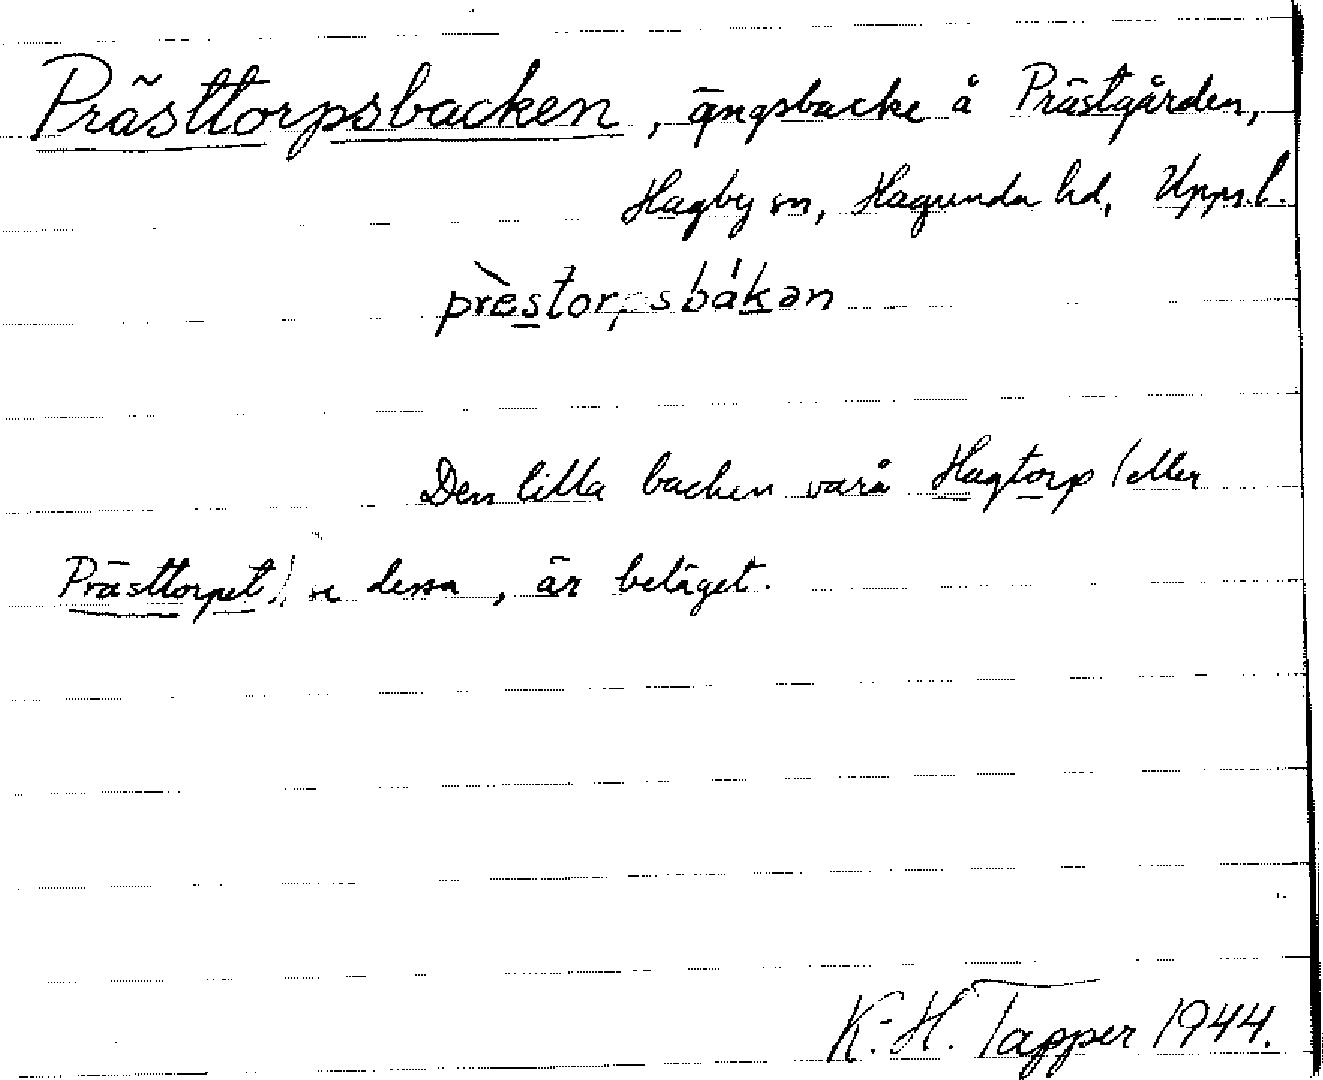 Prästtorpsbacken, ängsbacke å Prästgården,
Hagby sn, Hagunda hd, Uppl.
prèstorpsbákən
Den lilla backen varå Hagtorp (eller
Prästtorpet) se dessa, är beläget.
K.-H. Tapper 1944.